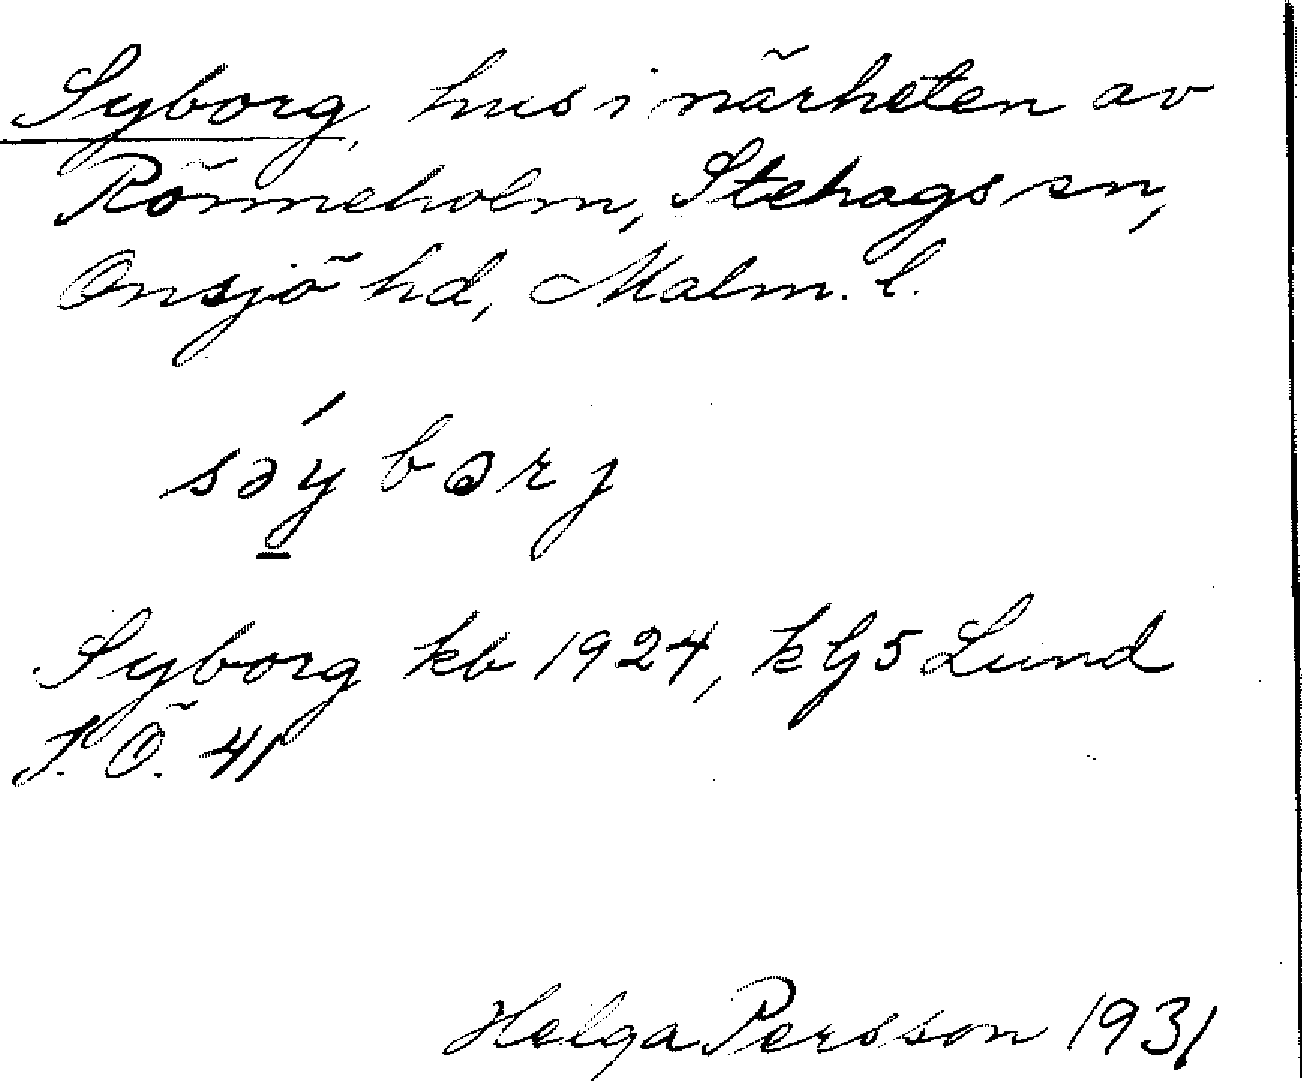 Syborg, hus i närheten av
Rönneholm, Stehags sn,
Onsjö hd, Malm. l.
səy bərj
Syborg kb 1924, k bl 5 Lund
S. Ö. 41
Helga Persson 1931